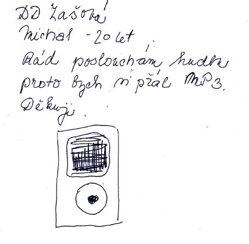 DD Žašová
Michal - 20 let
Rád poslouchám hudbu
proto bych si přál MP3.
Děkuji.